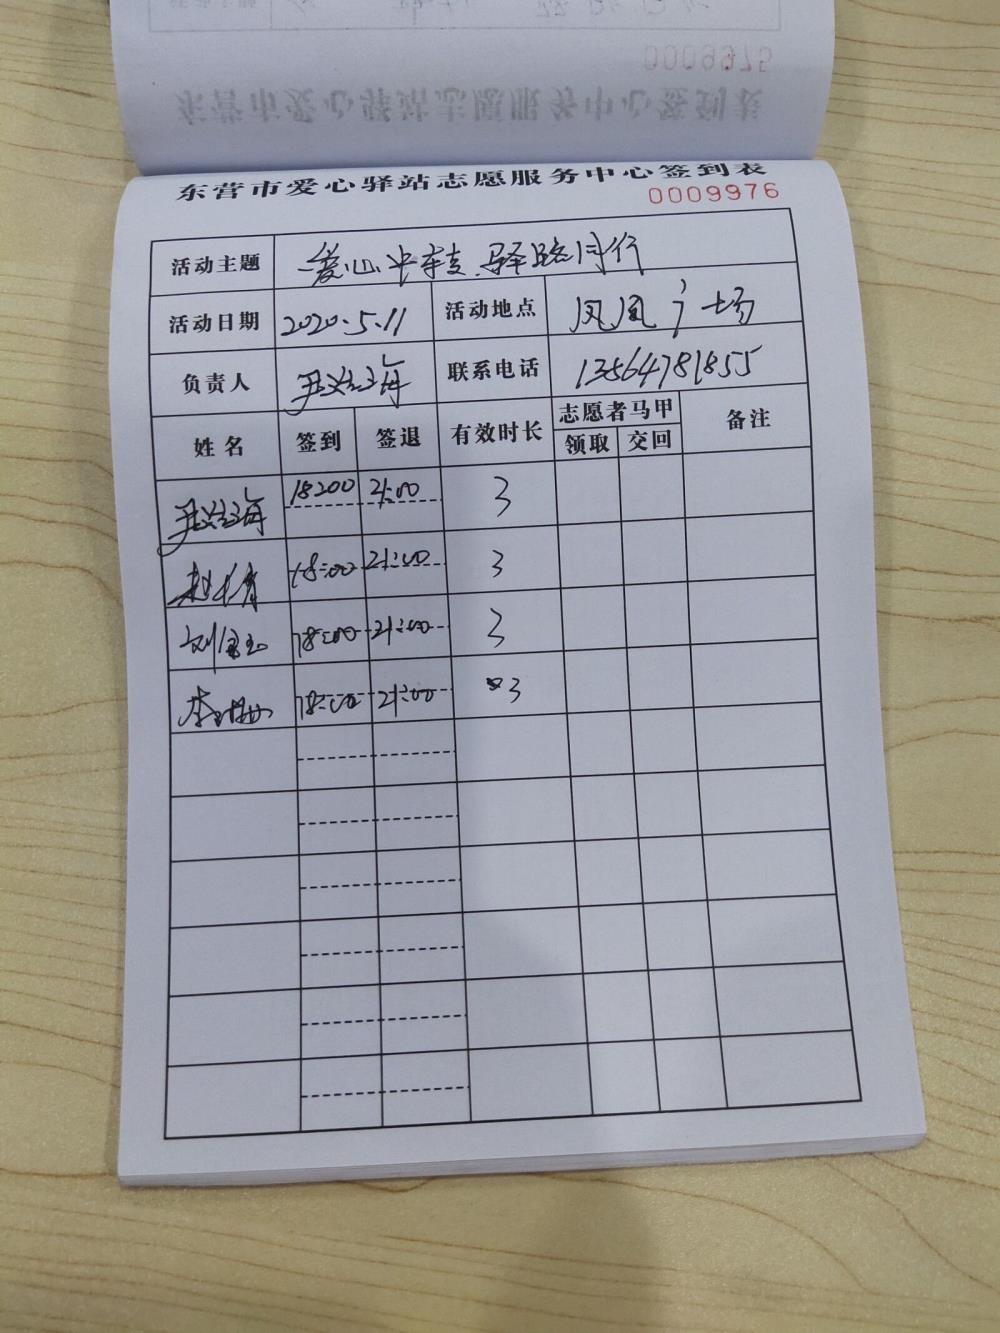 0009975
东营市爱心驿站志愿服务中心签到表
东营市爱心驿站志愿服务中心签到表
0009976
活动主题 爱心中转 驿路同行
活动日期 2020.5.11 活动地点 凤凰广场
负责人 联系电话 13864781855
姓名 签到 签退 有效时长 志愿者马甲 备注
领取 交回
18:00 21:00 3
18:00 21:00 3
18:00 21:00 3
18:00 21:00 3